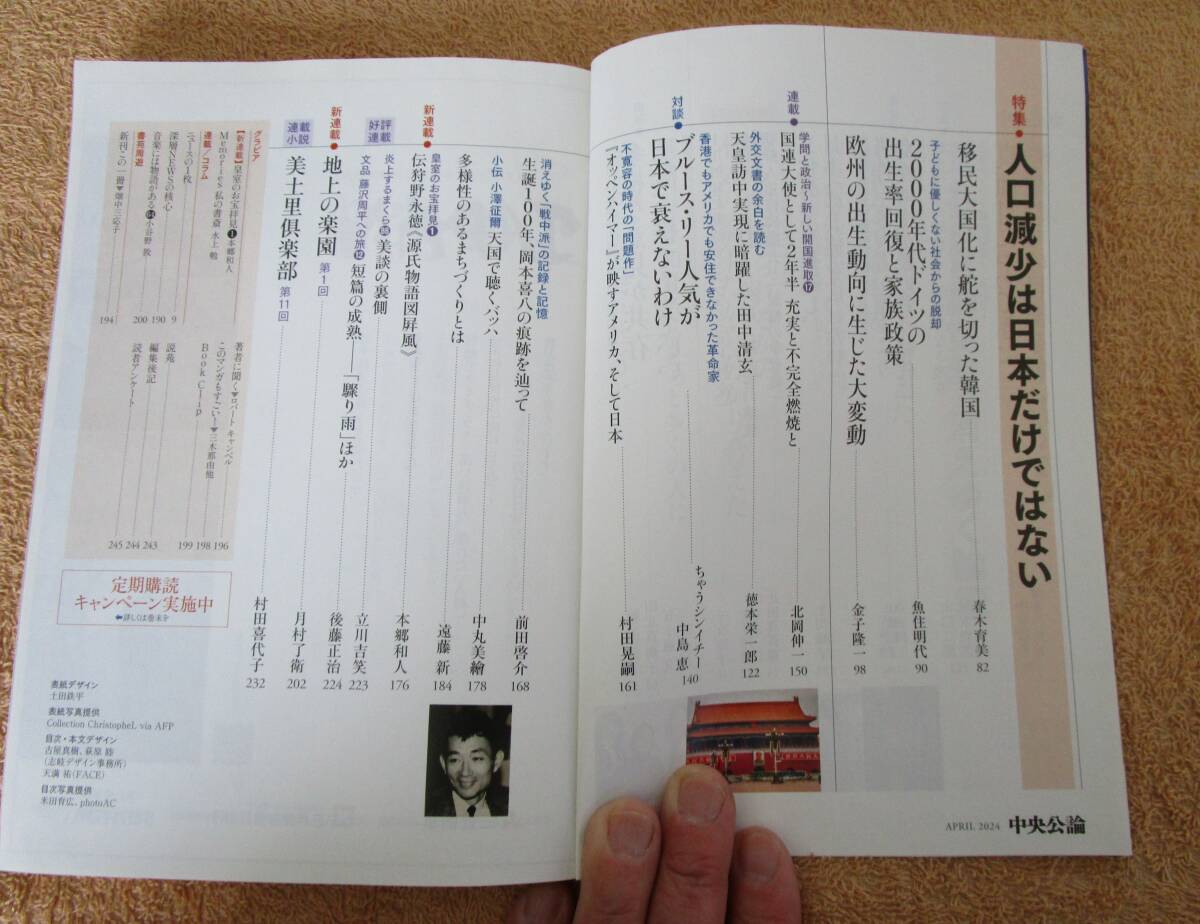 特集●人口減少は日本だけではない
移民大国化に舵を切った韓国
春木育美 82
子どもに優しくない社会からの脱却
2000年代ドイツの
出生率回復と家族政策
魚住明代 90
欧州の出生動向に生じた大変動
金子隆一 98
連載●
学問と政治〜新しい開国進取⑰
国連大使として2年半 充実と不完全燃焼と
北岡伸一 150
外交文書の余白を読む
天皇訪中実現に暗躍した田中清玄
徳本栄一郎 122
対談●
香港でもアメリカでも安住できなかった革命家
ブルース・リー人気が
日本で衰えないわけ
ちゃうシンイチー
中島 恵 140
不寛容の時代の「問題作」
『オッペンハイマー』が映すアメリカ、そして日本
村田晃嗣 161
APRIL 2024 中央公論
消えゆく「戦中派」の記録と記憶
生誕100年、岡本喜八の痕跡を辿って
前田啓介 168
小伝 小澤征爾 天国で聴くバッハ
中丸美繪 178
多様性のあるまちづくりとは
遠藤 新 184
新連載●
皇室のお宝拝見❶
伝狩野永徳《源氏物語図屏風》
本郷和人 176
好評連載
炎上するまくら 美談の裏側
立川吉笑 223
文品 藤沢周平への旅⑫ 短篇の成熟――「驟り雨」ほか
後藤正治 224
新連載●
地上の楽園 第1回
月村了衛 202
連載小説
美土里倶楽部 第11回
村田喜代子 232
グラビア
【新連載】皇室のお宝拝見❶本郷和人
Memories 私の書斎 水上 勉
連載／コラム
ニュースの1枚 9
深層NEWSの核心 190
音楽には物語がある 小谷野 敦 200
書苑周遊
新刊この一冊▼畑中三応子 194
著者に聞く▼ロバート キャンベル 196
このマンガもすごい!▼三木那由他 198
Book Clip 199
説苑 243
編集後記 244
読者アンケート 245
定期購読
キャンペーン実施中
⬅詳しくは巻末を
表紙デザイン
土田鉄平
表紙写真提供
Collection ChristopheL via AFP
目次・本文デザイン
古屋真樹、萩原 睦
（志岐デザイン事務所）
天満 祐（FACE）
目次写真提供
米田育広、photoAC